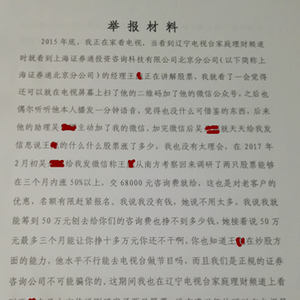 举报材料
2015年底，我正在家看电视，当看到辽宁电视台家庭理财频道
时就看到上海证券通投资咨询科技有限公司北京分公司（以下简称上
海证券通北京分公司）的经理王 正在讲解股票，我就看了一会觉得
还可以就在电视屏幕上扫了他的二维码加了他的微信公众号，之后也
偶尔听听他本人播发一分钟语音，觉得也没什么可借鉴的东西，后来
他的助理吴 主动加了我的微信，加完微信后吴 就天天给我发
信息说王 的什么什么股票涨了多少，我也没有太理会。在2017年
2月初吴 给我发微信称王 从南方考察回来调研了两只股票能够
在三个月内涨50%以上，交68000元咨询费就给，这也是对老客户的
优惠，名额有限赶紧报名，我说我没有钱，她说不用太多，我说我就
能筹到50万元刨去给你们的咨询费也挣不到多少钱，她接着说50万
元最多三个月能让你挣十多万元你还不干啊，你也知道王 在炒股方
面的能力，他水平不行能去电视台做节目吗，而且我们是正规的证券
咨询公司不可能骗你的，这期间我也在辽宁电视台家庭理财频道上看